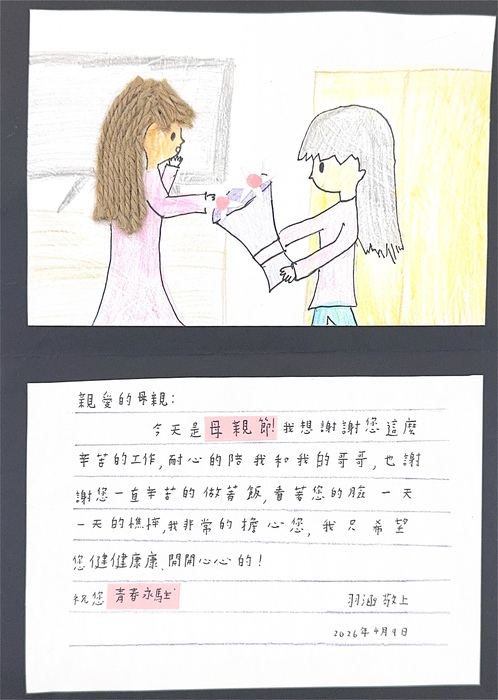 親愛的母親:
今天是母親節!我想謝謝您這麼
辛苦的工作,耐心的陪我和我的哥哥,也謝
謝您一直辛苦的做著飯,看著您的臉一天
一天的憔悴,我非常的擔心您,我只希望
您健健康康、開開心心的!
祝您青春永駐
羽涵敬上
2026年4月9日